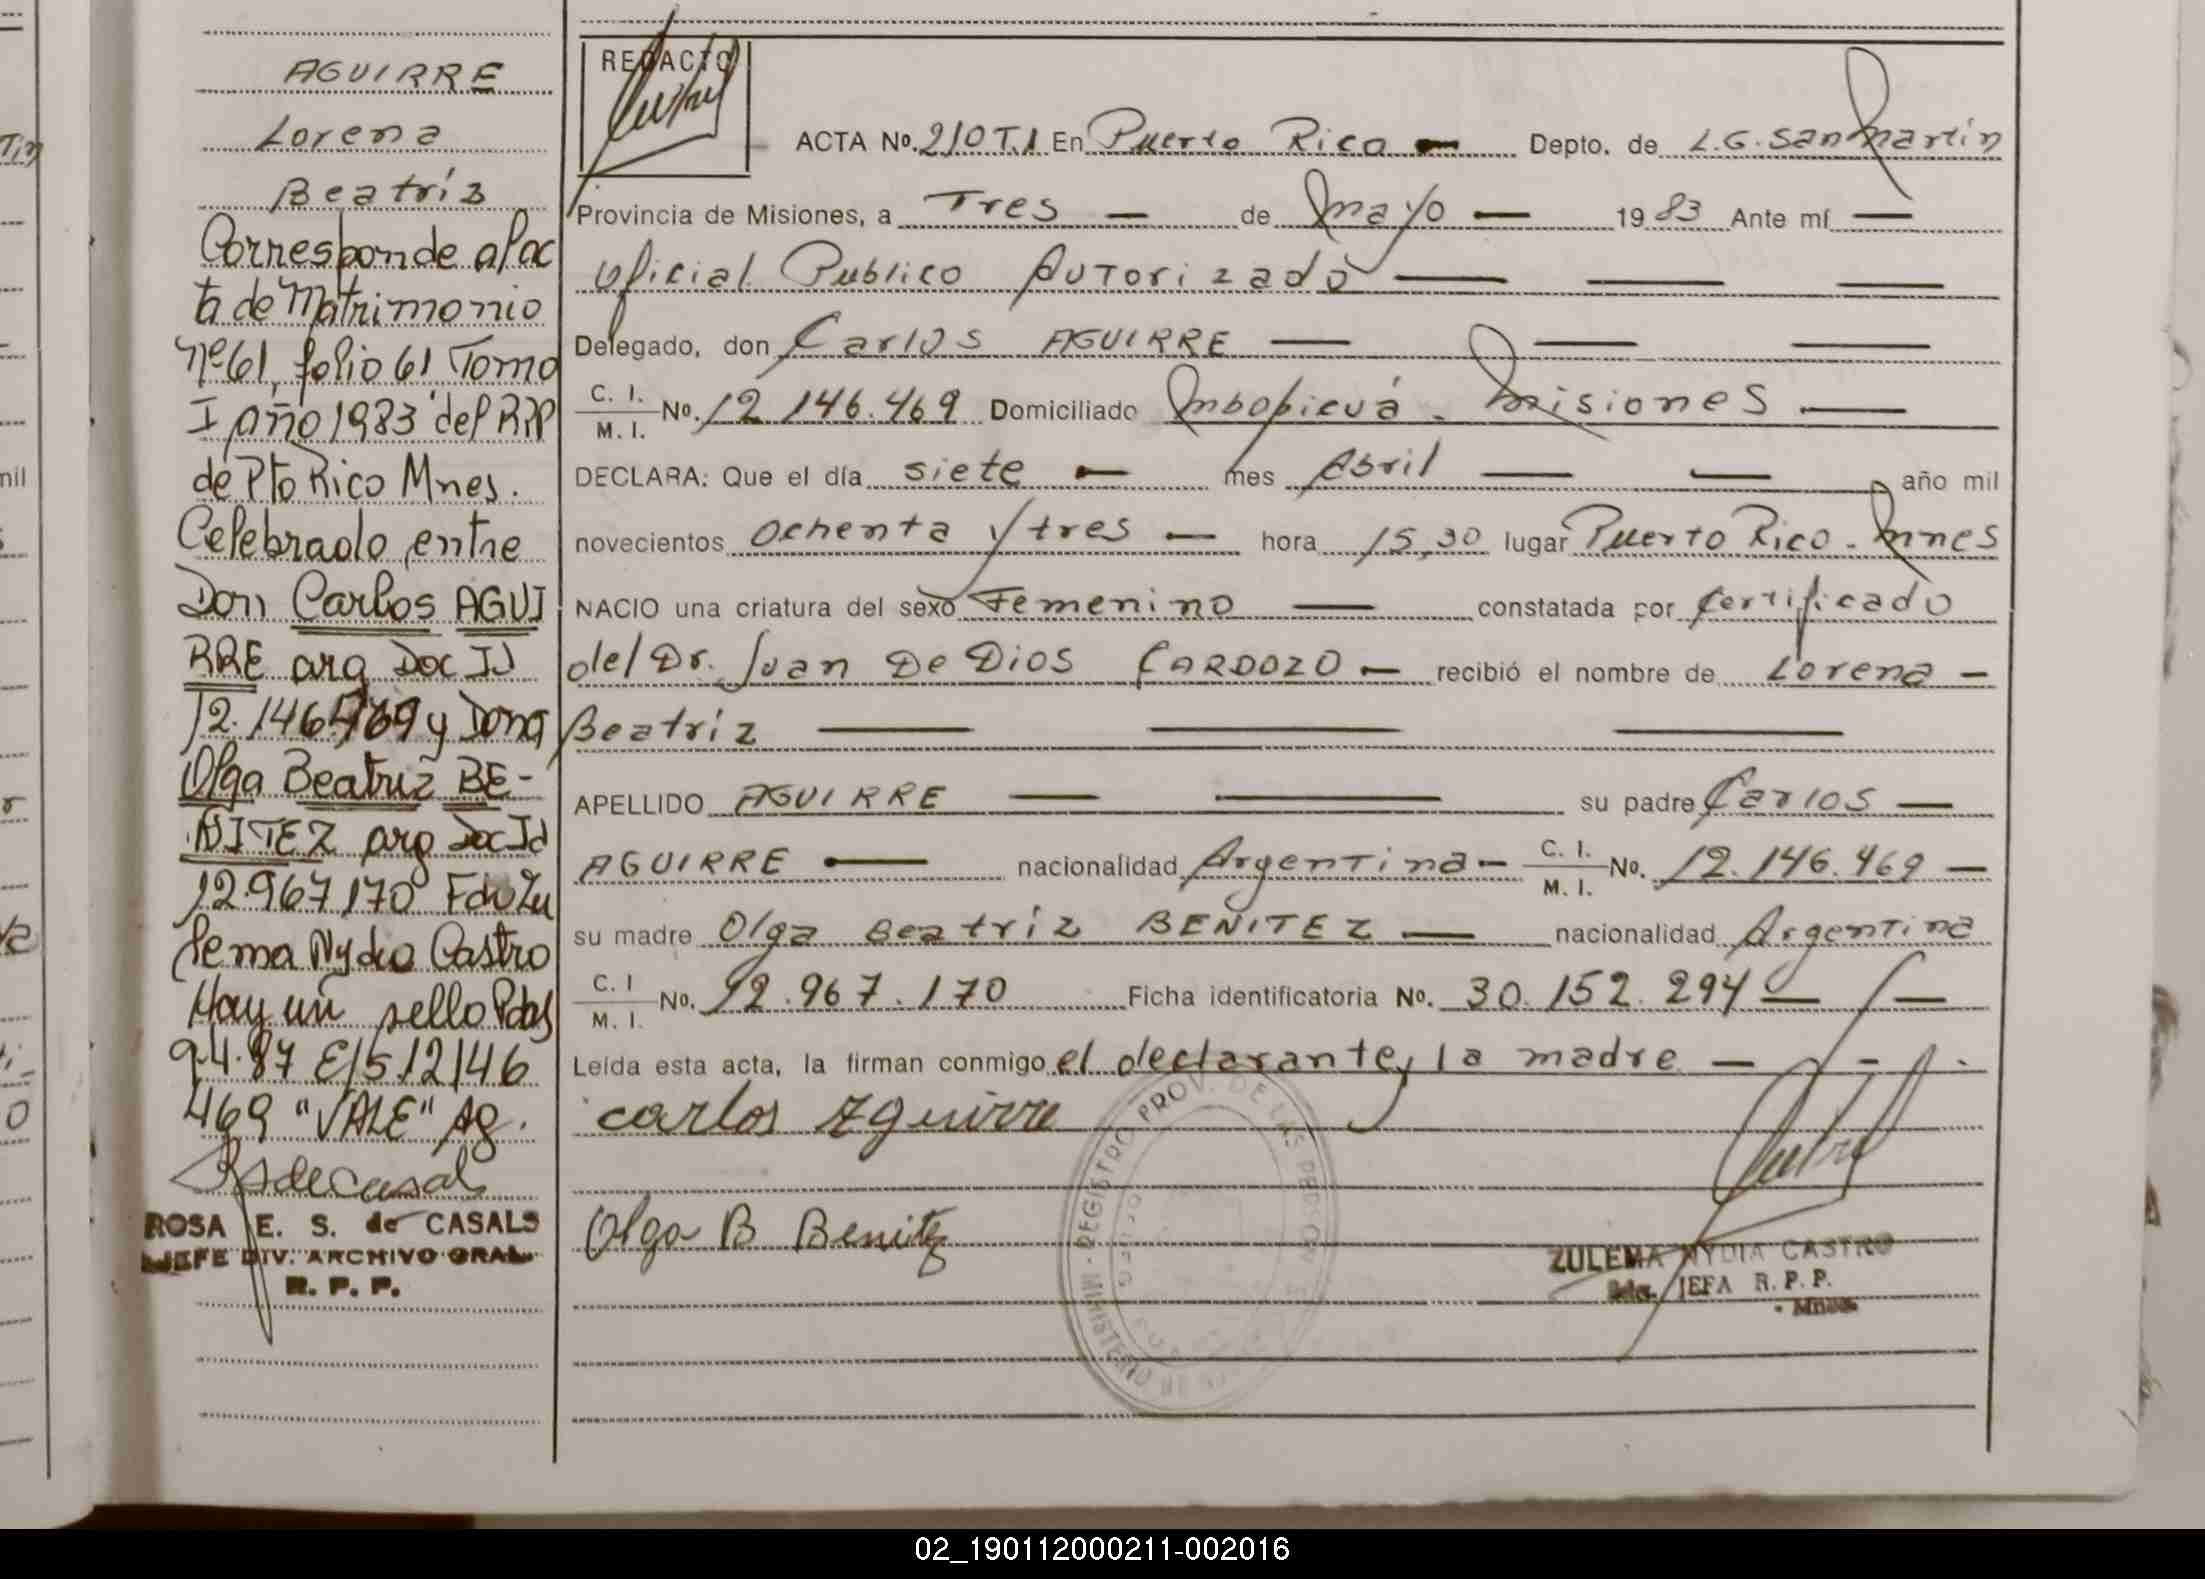 AGUIRRE
Lorena
Beatríz
Corresponde al ac
ta de Matrimonio
Nº 61, folio 61 Tomo
I año 1983 del RPP
de Pto Rico Mnes.
Celebrado entre
Don Carlos AGUI
RRE arg Doc Id
12.146.469 y Dona
Olga Beatriz BE-
NITEZ arg Doc Id
12.967.170 Fdo Zu
lema Nydia Castro
Hay un sello Pdas
9.4.87 E/5 12146
469 "VALE" Ag.
RSdeCasals
ROSA E. S. de CASALS
JEFE DIV. ARCHIVO GRAL.
R. P. P.
REDACTO
ACTA Nº. 210 T.1 En Puerto Rico — Depto. de L.G. San Martín
Provincia de Misiones, a Tres — de mayo — 1983 Ante mí —
Oficial Publico Autorizado — — —
Delegado, don Carlos AGUIRRE — — —
C. I.
M. I. Nº. 12.146.469 Domiciliado Mbopicuá - Misiones —
DECLARA: Que el día siete — mes Abril — — año mil
novecientos ochenta y tres — hora 15,30 lugar Puerto Rico - Mnes
NACIO una criatura del sexo Femenino — constatada por Certificado
del Dr. Juan De Dios CARDOZO — recibió el nombre de Lorena —
Beatríz — — —
APELLIDO AGUIRRE — — su padre Carlos —
AGUIRRE — nacionalidad Argentina — C. I.
M. I. Nº. 12.146.469 —
su madre Olga Beatríz BENITEZ — nacionalidad Argentina
C. I
M. I. Nº. 12.967.170 Ficha identificatoria Nº. 30.152.294 — —
Leída esta acta, la firman conmigo el declarante y la madre — -.
carlos Aguirre
Olga B Benitez
MINISTERIO DE REGISTRO PROV. DE LAS PERSONAS
ZULEMA NYDIA CASTRO
JEFA R. P. P.
Mnes.
02_190112000211-002016